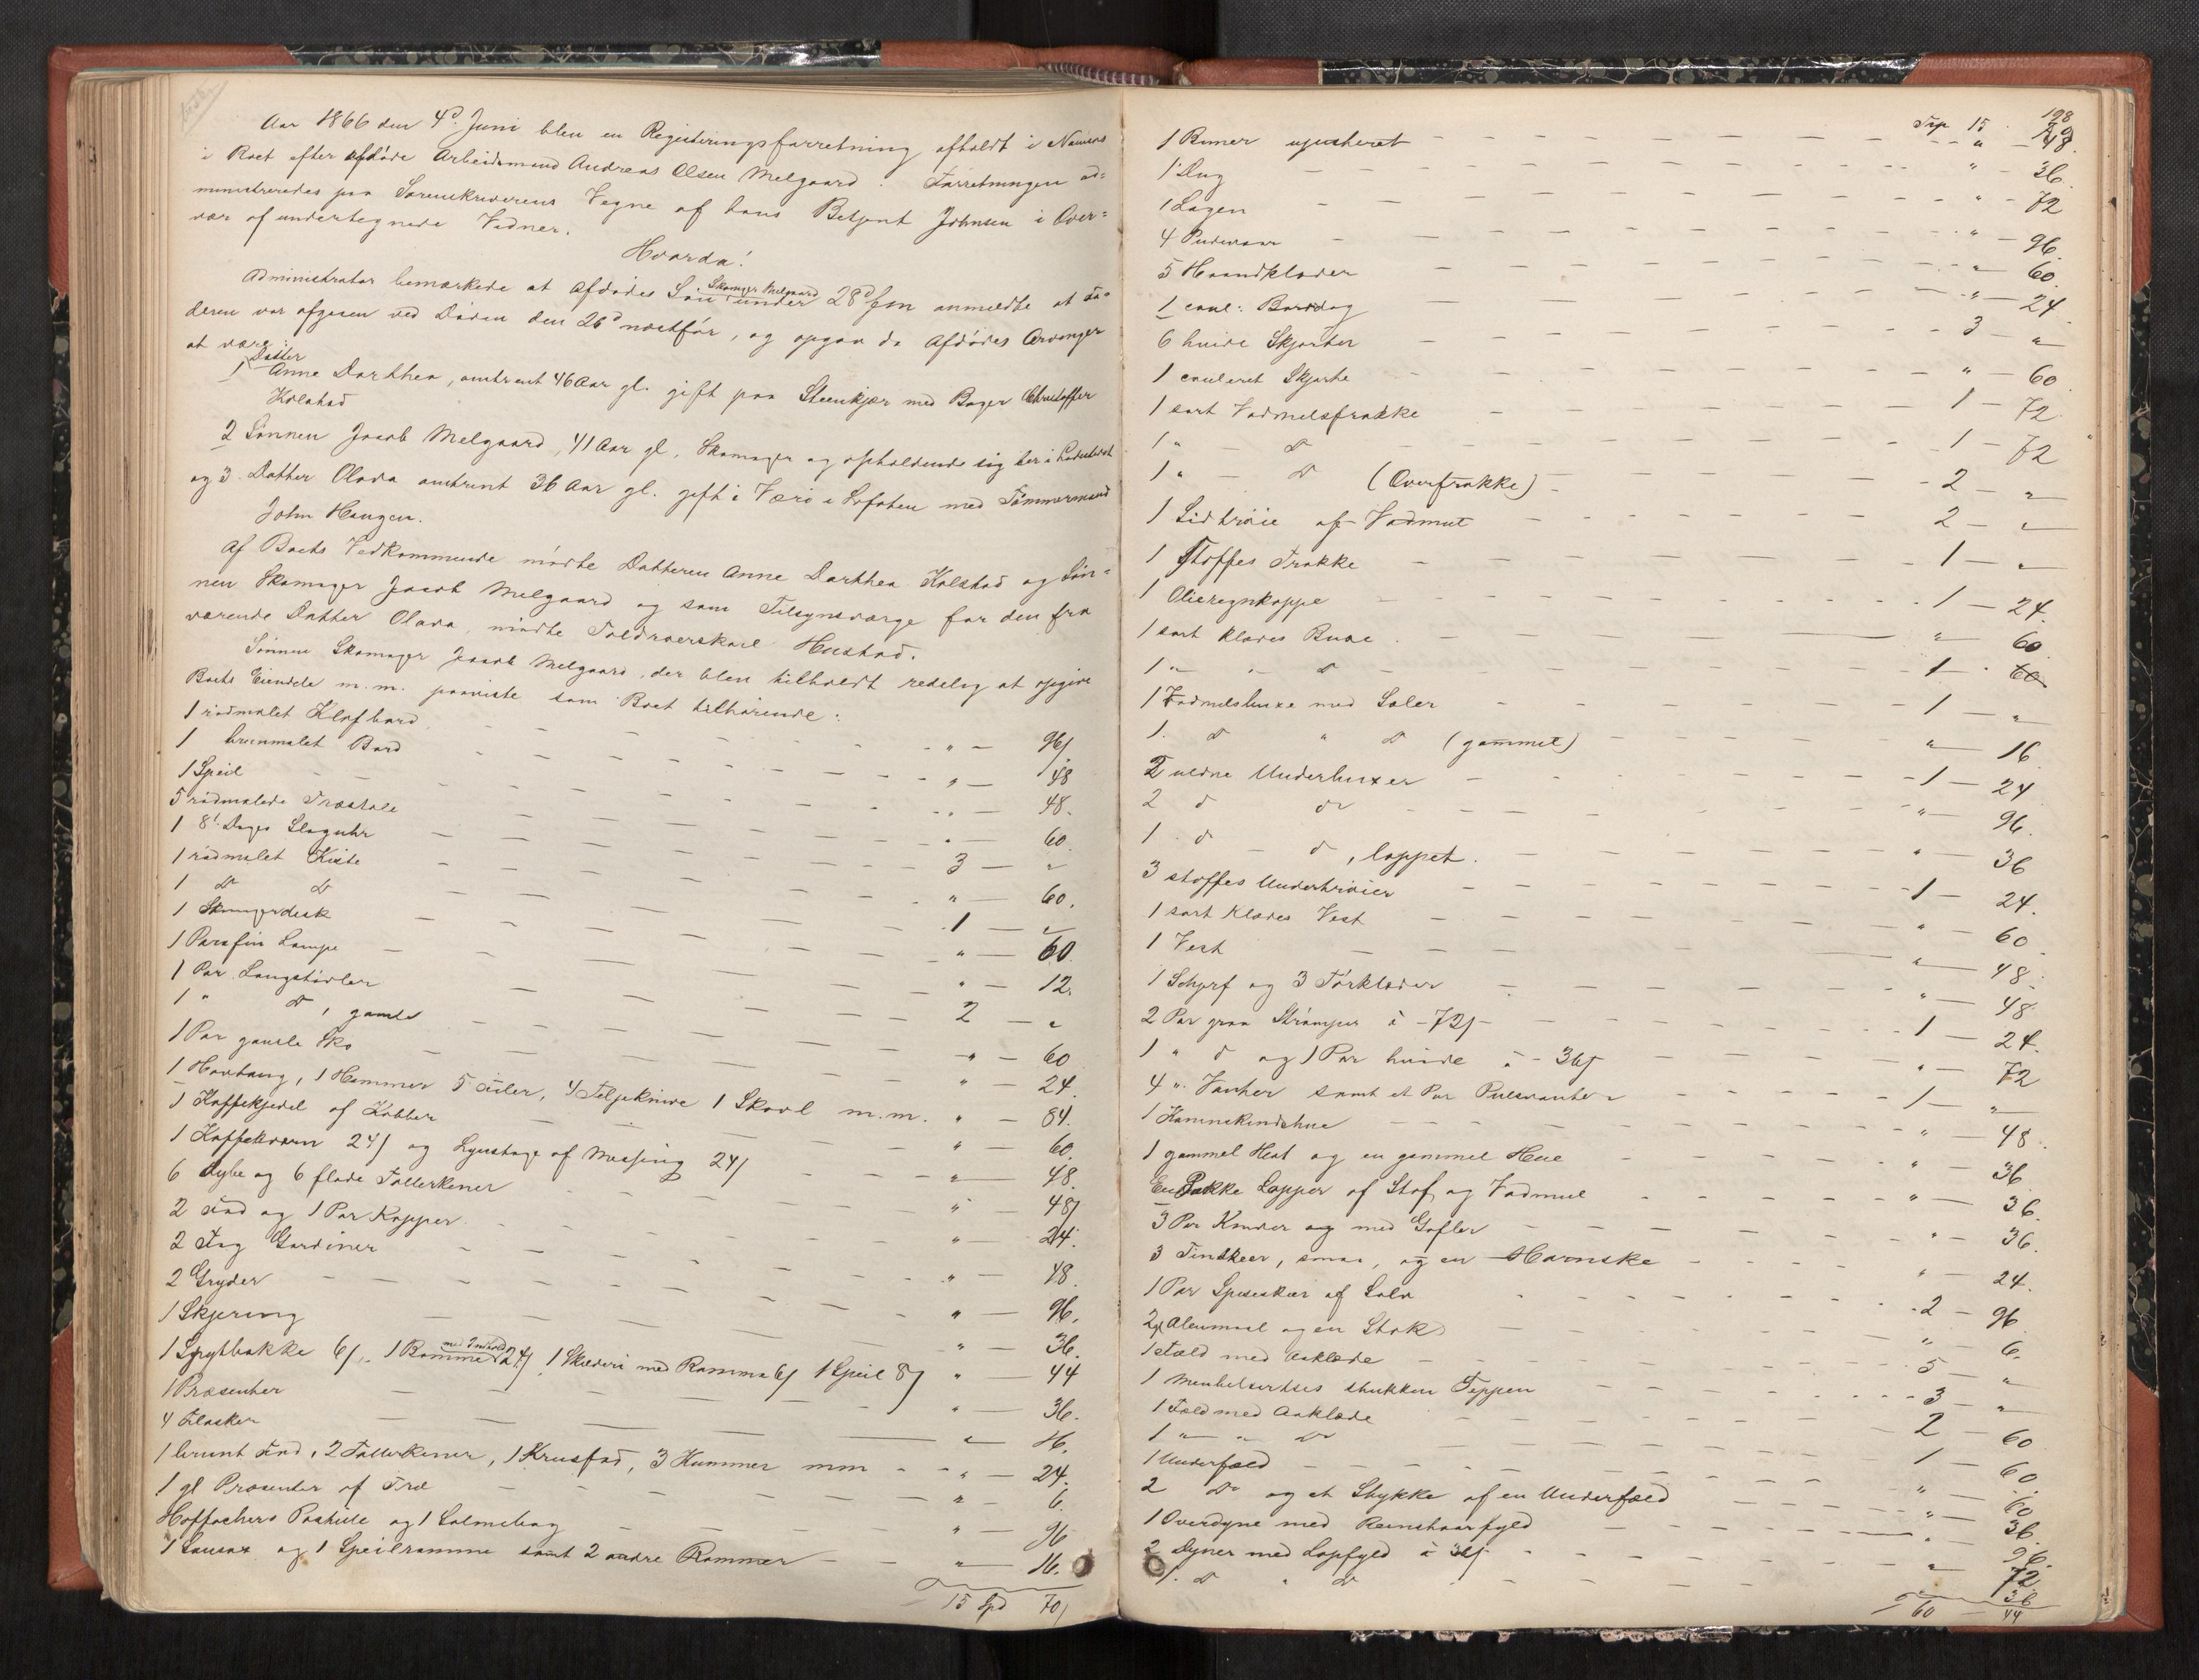 Aar 1866 den 4d Juni blev en Registeringsforretning afholdt i Namsos
i Boet efter afdøde Arbeidsmand Andreas Olsen Melgaard. Forretningen ad=
ministreredes paa Sorenskriverens Vegne af hans Betjent Johnsen i Over=
vær af undertegnede Vidner.
Hvorda!
Administrator bemærkede at Afdødes Søn Skomager Melgaard under 28d f.m anmeldte at Fa=
deren var afgaaen ved Døden den 26d næstfør, og opgav da Afdødes Arvinger
at være:
1 Datter Anne Dorthea, omtrent 46 Aar gl. gift paa Steenkjær med Bager Christoffer
Kolstad
2 Sønnen Jacob Melgaard, 41 Aar gl, Skomager og opholdende sig her i Ladestedet
og 3. Datter Olava omtrent 36 Aar gl. gift i Værø i Lofoten med Tømmermand
John Haugen.
Af Boets Vedkommende mødte Datteren Anne Dorthea Kolstad og Søn=
nen Skomager Jacob Melgaard og som Tilsynsværge for den fra
værende Datter Olava mødte Toldroerskarl Hustad.
Sønnen Skomager Jacob Melgaard, der blev tilholdt redelig at opgive
Boets Eiendele m.m. paaviste som Boet tilhørende:
1 rødmalet Klafbord " — 96/
1 brunmalet Bord " — 48
1 Speil " — 48.
5 rødmalede Træstole " — 60
1 8t Dages Slaguhr 3 — "
1 rødmalet Kiste " — 60.
1 do do 1 — "
1 Skomagerdisk " — 60
1 Parafin Lampe " — 12.
1 Par Langstøvler 2 — "
1 " do, gamle " — 60
1 Par gamle Sko " — 24
1 Hovtang, 1 Hammer 5 Siler, 4 Teljeknive 1 Skovl m.m. " — 84.
1 Kaffekjedel af Kobber " — 60.
1 Kaffekværn 24/ og Lysestage af Messing 24/ " — 48.
6 dybe og 6 flade Tallerkener " — 48/
2 Fad og 1 Par Kopper " — 24.
2 Fag Gardiner " — 48.
2 Gryder " — 96.
1 Skjering " — 36.
1 Spytbakke 6/, 1 Ramme med Indhold 24/ 1 Skilderi med Ramme 6/ 1 Speil 8/ " — 44
1 Præsenter " — 36.
4 Flasker " — 16.
1 brunt Fad, 2 Tallerkener, 1 Krusfad, 3 Kummer mm " — 24.
1 gl Præsenter af Træ " — 6.
Hoffachers Postille og 1 Salmebog " — 96
1 og 1 Speilramme samt 2 andre Rammer " — 16.
15 Spd 70/
198
Trp 15. 70
1 Bumer ujusteret " — 48.
1 Dug " — 36.
1 Lagen " — 72
4 Pudevaar " — 96.
5 Haandklæder " — 60.
1 coul: Bordug " — 24.
6 hvide Skjorter 3 — "
1 couleret Skjorte " — 60
1 sort Vadmelsfrakke 1 — 72.
1 " do 1 — 72
1 " do (Overfrakke) 2 — "
1 Sidtrøie af Vadmel 2 — "
1 Stoffes Frakke 1 — "
1 Olieregnkappe 1 — 24.
1 sort Klædes Buxe " — 60
1 " " do 1 — 60
1 Vadmelsbuxe med Saler 1 — "
1. do " do (gammel) " — 16
2 uldne Underbuxer 1 — 24
2 do do " — 96.
1. do do, lappet. " — 36
3 stoffes Undertrøier 1 — 24.
1 sort Klædes Vest " — 60
1 Vest " — 48.
1 Schjerf og 3 Tørklæder " — 48
2 Par graa Strømper à 72/ 1 — 24.
1 " do og 1 Par hvide à 36/ " — 72
4 " Vanter samt et Par Pulsvanter 1 — "
1 Kaninskindshue " — 48.
1 gammel Hat og en gammel Hue " — 36
En Pakke Lapper af Stof og Vadmel " — 36.
3 Par Knive og med Gafler " — 36.
3 Tinskeer, smaa, og en Hornske " — 24.
1 Par Spiseskeer af Sølv 2 — 96
2 Alenmaal og en Stok " — 6.
1 Fæld med Aaklæde 5 — "
1 stukken Teppen 3 — "
1 Fæld med Aaklæde 2 — 60
1 " " do 1 — 60
1 Underfæld " — 60
2 do og et Stykke af en Underfæld " — 36
1 Overdyne med Reinshaarfyld " — 96.
2 Dyner med Lopfyld à 36/ " — 72
1. do " do " 36
60 — 44